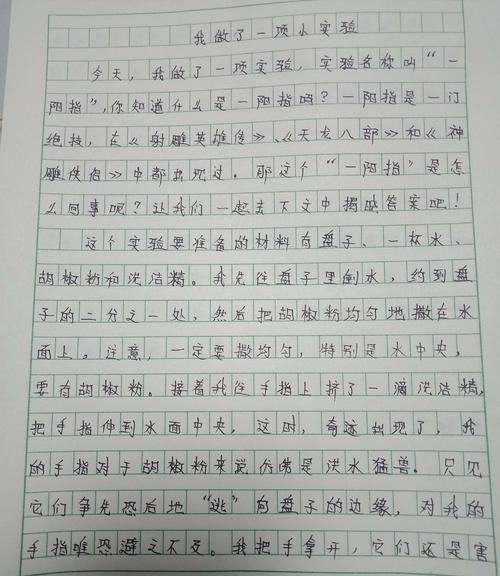 我做了一项小实验
今天，我做了一项实验，实验名称叫“一
阳指”，你知道什么是一阳指吗？一阳指是一门
绝技，在《射雕英雄传》、《天龙八部》和《神
雕侠侣》中都出现过。那这个“一阳指”是怎
么回事呢？让我们一起去下文中揭晓答案吧！
这个实验要准备的材料有盘子、一杯水、
胡椒粉和洗洁精。我先往盘子里倒水，约到盘
子的二分之一处，然后把胡椒粉均匀地撒在水
面上。注意，一定要撒均匀，特别是水中央，
要有胡椒粉。接着我往手指上挤了一滴洗洁精，
把手指伸到水面中央，这时，奇迹出现了，我
的手指对于胡椒粉来说仿佛是洪水猛兽。只见
它们争先恐后地“逃”向盘子的边缘，对我的
手指唯恐避之不及。我把手拿开，它们还是害